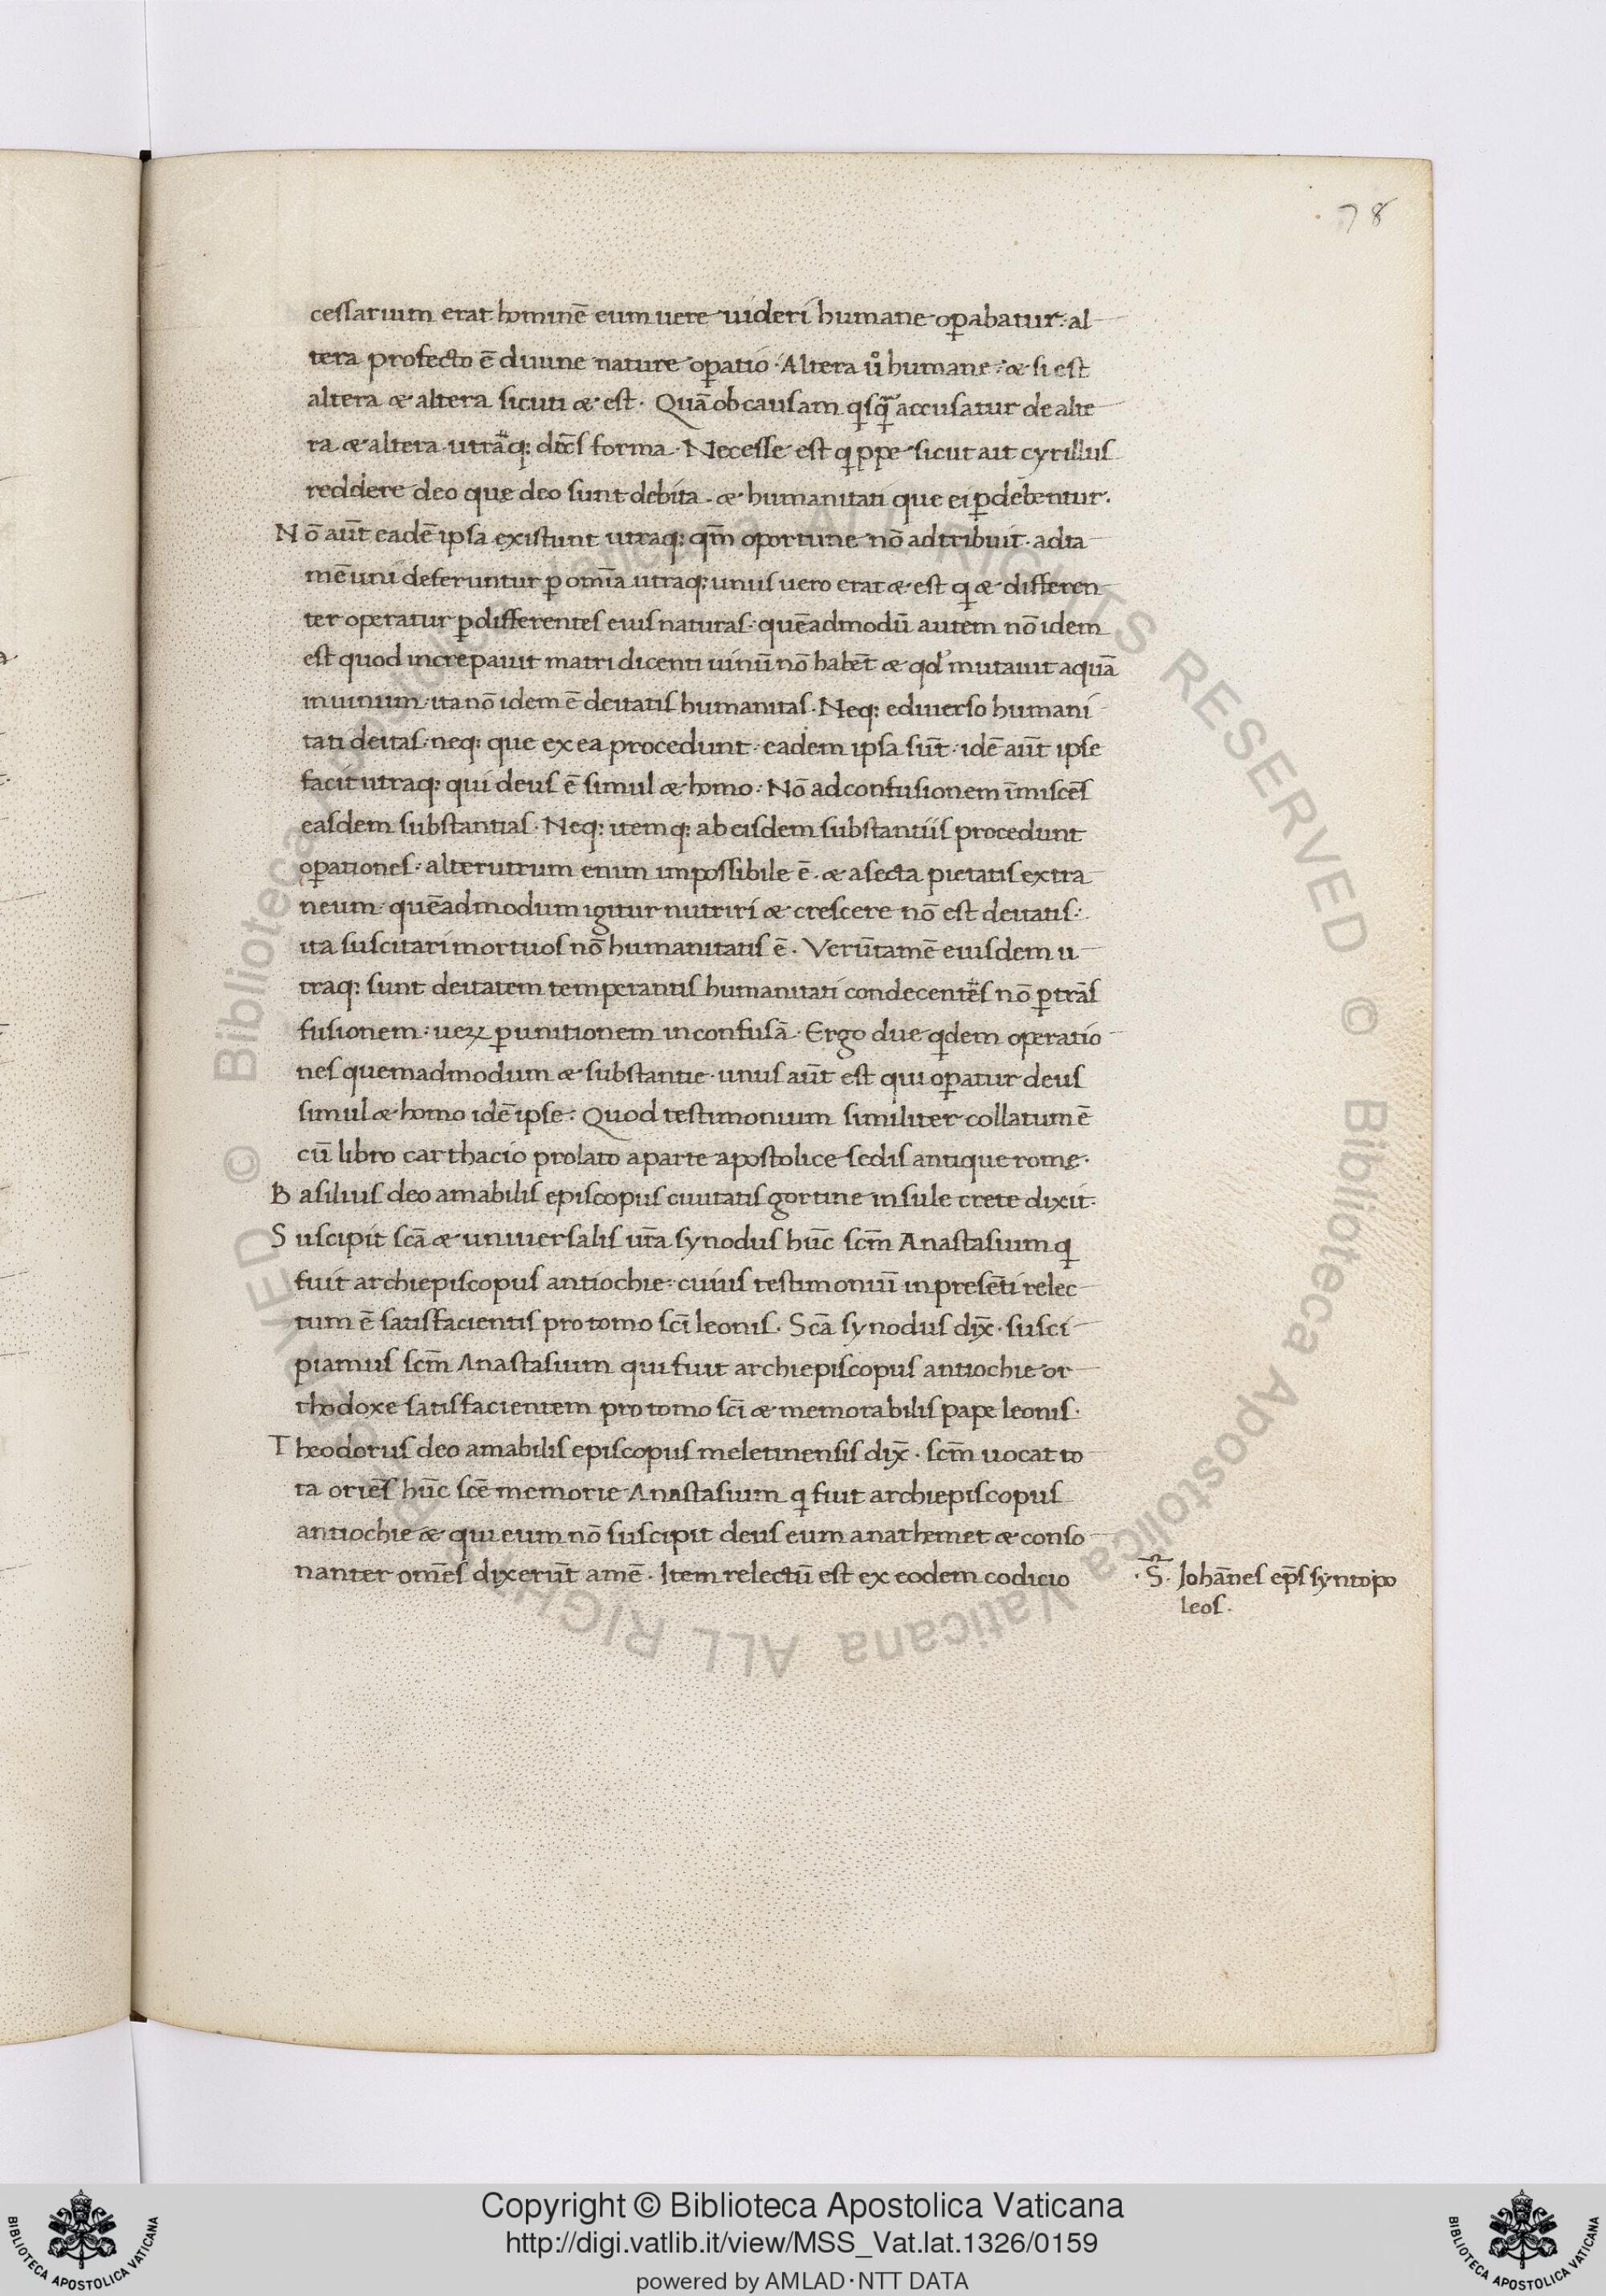 78
cessarium erat hominē eum uere uideri humane oꝑabatur· al
tera profecto ē diuine nature oꝑatio · Altera ů humane · & si est
altera & altera sicuti & est · Quā ob causam accusatur de alte
ra & altera utraq: forma · Necesse est q ppe sicut ait cyrillus
reddere deo que deo sunt debita · & humanitati que ei ꝑdebentur.
Nō aūt eadē ipsa existunt utraq: qm̄ oportune nō adtribuit · adta
mē uni deferuntur ꝑ omīa utraq: unus uero erat & est q & differen
ter operatur ꝑ differentes eius naturas · quēadmodū autem nō idem
est quod increpauit matri dicenti uinū nō habēt & qd' mutauit aquā
in uinum · ita nō idem ē deitatis humanitas · Neq: ediuerso humani
tati deitas · neq: que ex ea procedunt · eadem ipsa sūt · idē aūt ipse
facit utraq: qui deus ē simul & homo · Nō ad confusionem īmiscēs
easdem substantias · Neq: itemq: ab eisdem substantiis procedunt
oꝑationes · alterutrum enim impossibile ē · & a secta pietatis extra
neum · quēadmodum igitur nutriri & crescere nō est deitatis ·
ita suscitari mortuos nō humanitatis ē · Verūtamē eiusdem u
traq: sunt deitatem temperantis humanitati condecentēs nō ꝑ trās
fusionem · ueꝝ ꝑ unitionem inconfusā · Ergo due qdem operatio
nes quemadmodum & substantie · unus aūt est qui oꝑatur deus
simul & homo idē ipse · Quod testimonium similiter collatum ē
cū libro carthacio prolato a parte apostolice sedis antique rome ·
Basilius deo amabilis episcopus ciuitatis gortine insule crete dixit ·
Suscipit scā & uniuersalis ur̄a synodus hūc scm̄ Anastasium q
fuit archiepiscopus antiochie · cuius testimoniū in presēti relec
tum ē satisfacientis pro tomo scī leonis · Scā synodus dix̄ · susci
piamus scm̄ Anastasium qui fuit archiepiscopus antiochie or
thodoxe satisfacientem pro tomo scī & memorabilis pape leonis ·
Theodorus deo amabilis episcopus meletinensis dix̄ · scm̄ uocat to
ta oriēs hūc scē memorie Anastasium q fuit archiepiscopus
antiochie & qui eum nō suscipit deus eum anathemet & conso
nanter omēs dixerūt amē · Item relectū est ex eodem codicio
· S̄ · Johānes ep̄s syntopo
leos ·
Copyright © Biblioteca Apostolica Vaticana
http://digi.vatlib.it/view/MSS_Vat.lat.1326/0159
powered by AMLAD·NTT DATA
BIBLIOTECA APOSTOLICA VATICANA
BIBLIOTECA APOSTOLICA VATICANA